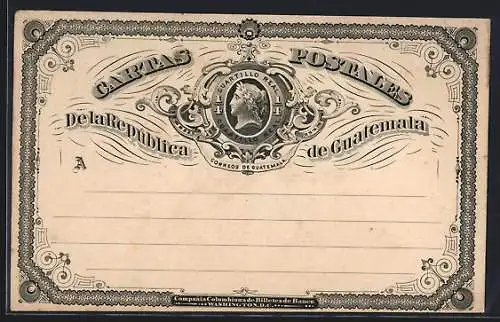 CARTAS POSTALES
CUARTILLO REAL
De la República de Guatemala
CORREOS DE GUATEMALA
A
Compañia Colombiana de Billetes de Banco
WASHINGTON, D.C.